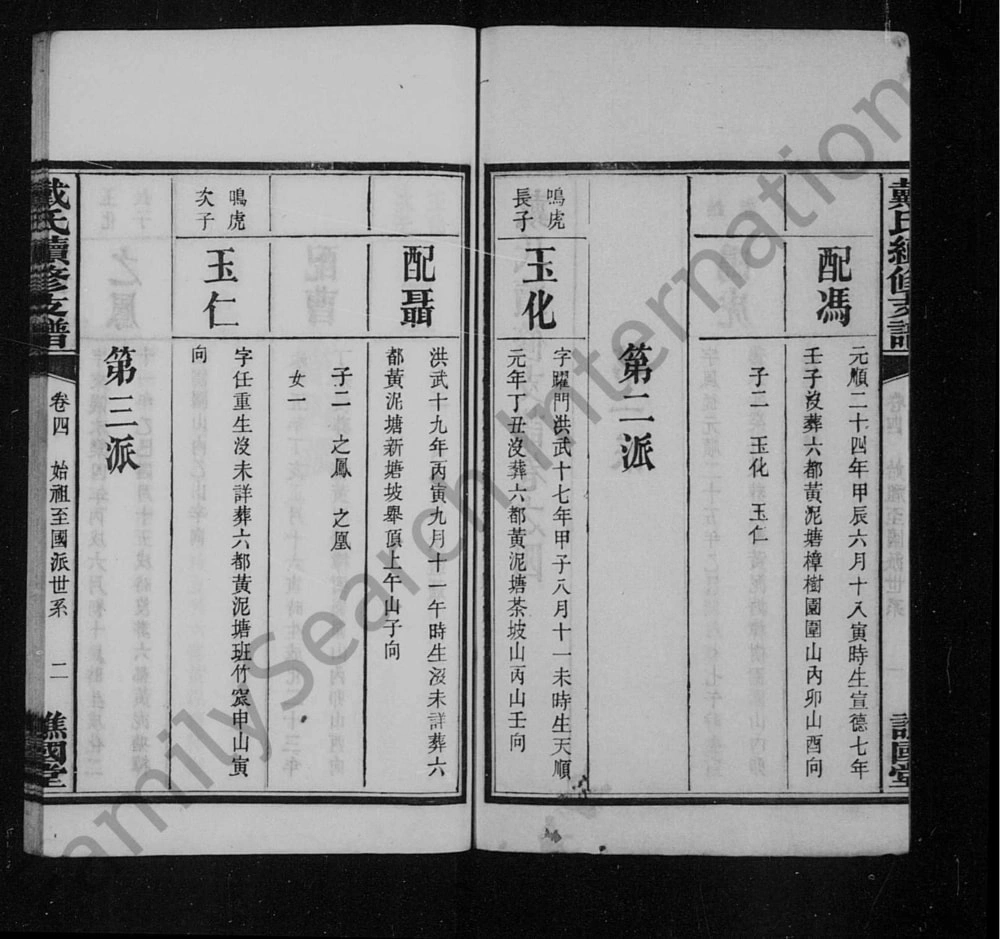 戴氏續修支譜
譙國堂
配馮
元順二十四年甲辰六月十八寅時生宣德七年
壬子沒葬六都黃泥塘樟樹園圍山內卯山酉向
子二 玉化 玉仁
第二派
鳴虎
長子
玉化
字曜門洪武十七年甲子八月十一未時生天順
元年丁丑沒葬六都黃泥塘茶坡山丙山壬向
配聶
洪武十九年丙寅九月十一午時生沒未詳葬六
都黃泥塘新塘坡舉頂上午山子向
子二 之鳳 之凰
女一
鳴虎
次子
玉仁
字任重生沒未詳葬六都黃泥塘班竹窩申山寅
向
第三派
戴氏續修支譜
卷四 始祖至國派世系 二
譙國堂
FamilySearch International